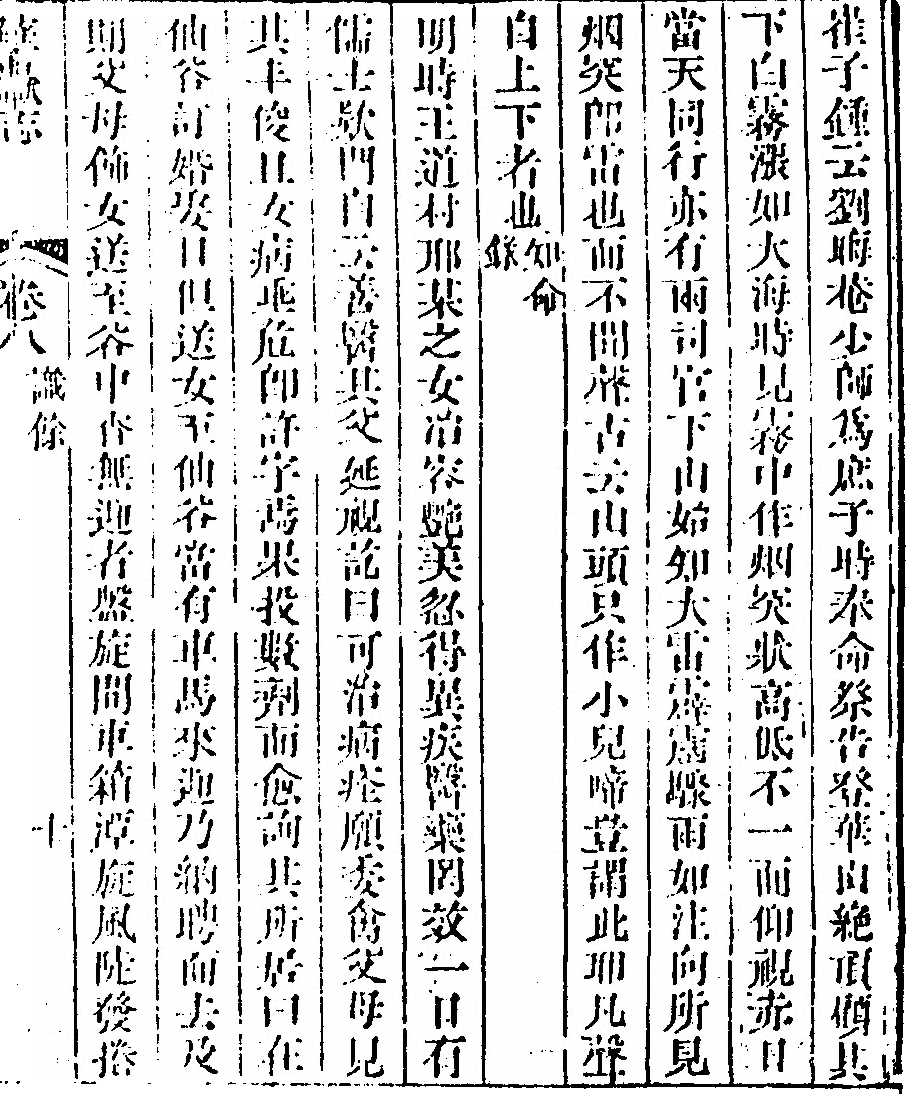 崔子鍾云劉晦菴少師為庶子時奉命祭告登華山絕頂頫其
下白霧漲如大海時見霧中作烟突狀高低不一而仰視赤日
當天同行亦有雨司官下山始知大雷霹靂驟雨如注向所見
烟突即雷也而不聞聲古云山頭只作小兒啼豈謂此耶凡聲
自上下者也知命錄
明時王道村邢某之女冶容艷美忽得異疾醫藥罔效一日有
儒士欵門自云善醫其父延視訖曰可治病痊願委禽父母見
其丰俊且女病垂危即許字焉果投數劑而愈詢其所居曰在
仙谷訂婚娶日但送女至仙谷當有車馬來迎乃納聘而去及
期父母飾女送至谷中杳無迎者盤旋間車箱潭旋風陡發捲
卷八
識餘
十